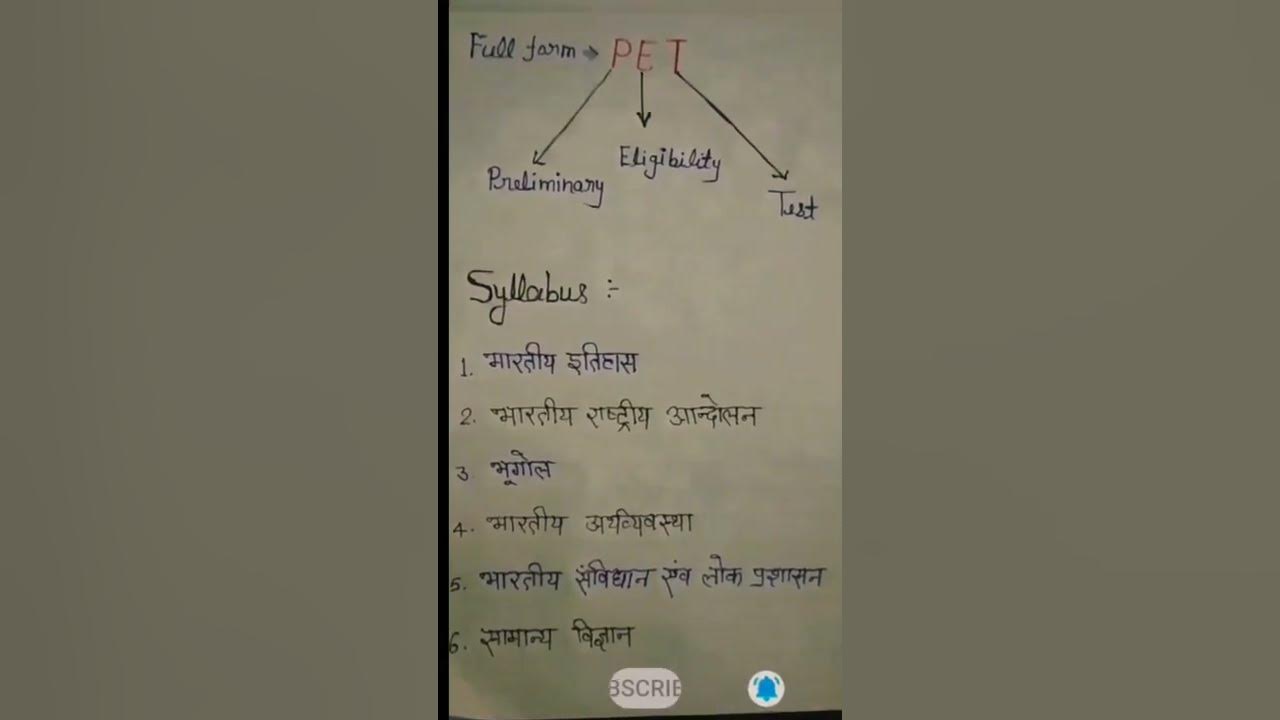 Full farm → PET
Preliminary
Eligibility
Test
Syllabus :-
1. भारतीय इतिहास
2. भारतीय राष्ट्रीय आन्दोलन
3 भूगोल
4. भारतीय अर्थव्यवस्था
5. भारतीय संविधान एंव लोक प्रशासन
6. सामान्य विज्ञान
BSCRIB